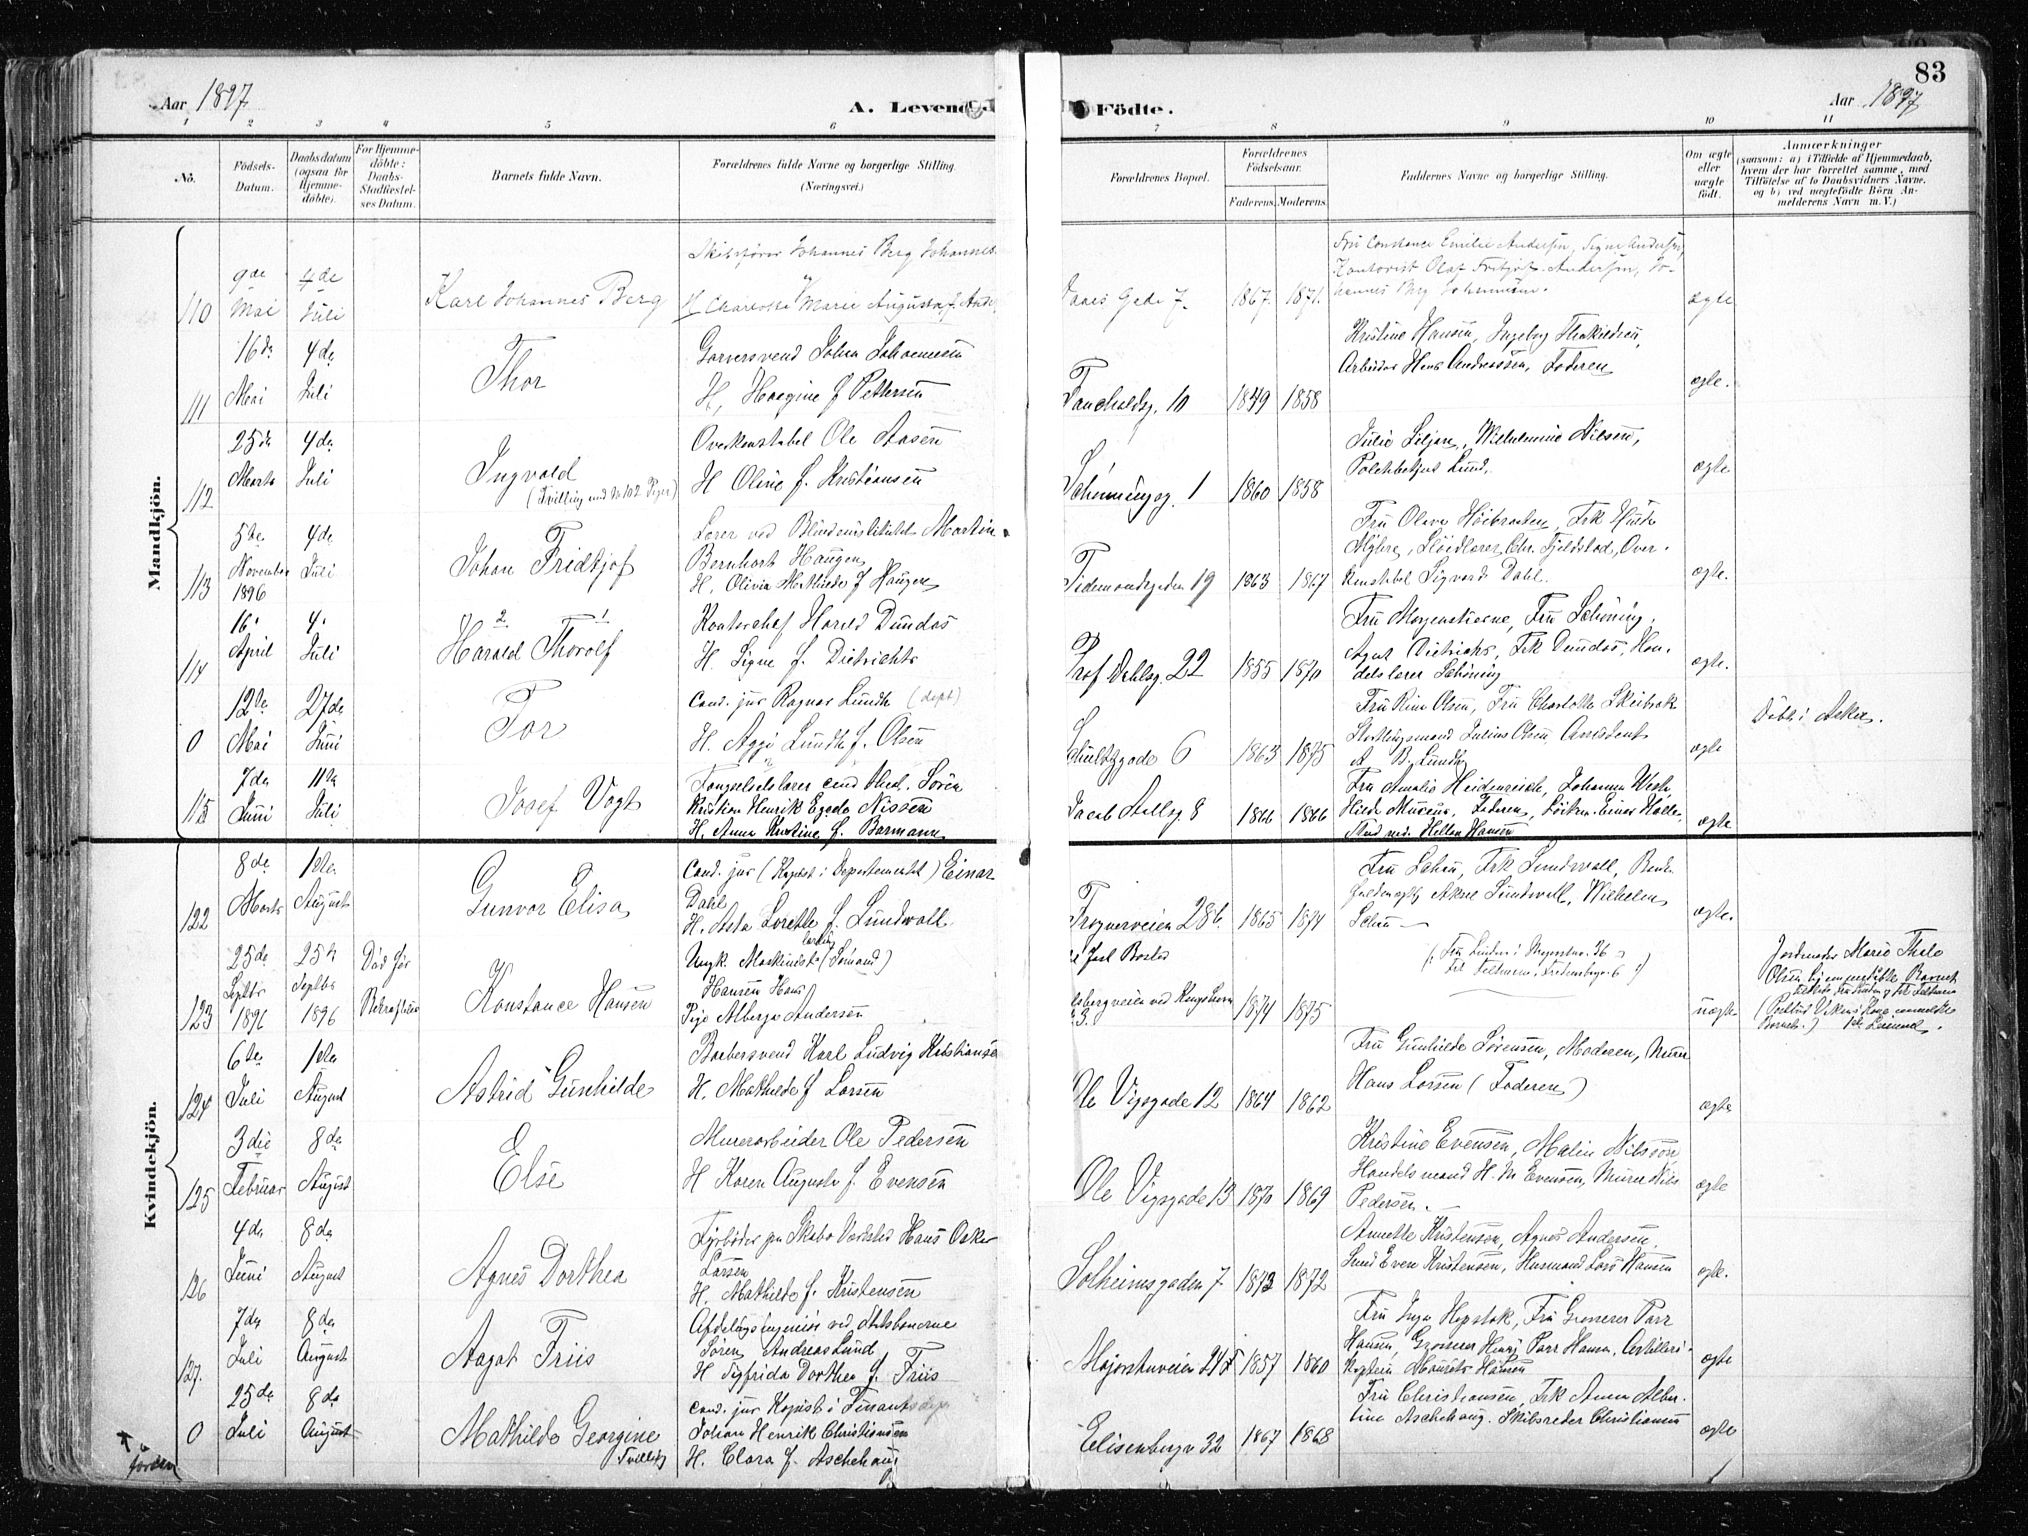 83
Aar 1897
A. Levende
Födte.
Aar 1897
1 2 3 4 5 6 7 8 9 10 11
No.
Födsels-
Datum.
Daabsdatum
(ogsaa for
Hjemme-
döbte).
For Hjemme-
döbte:
Daabs-
Stadfæstel-
ses Datum.
Barnets fulde Navn.
Forældrenes fulde Navne og borgerlige Stilling.
(Næringsvei.)
Forældrenes Bopæl.
Forældrenes
Födselsaar.
Faderens. Moderens.
Faddernes Navne og borgerlige Stilling.
Om ægte
eller
uægte
födt.
Anmærkninger
(saasom: a) i Tilfælde af Hjemmedaab,
hvem der har forrettet samme, med
Tilföielse af to Daabsvidners Navne.
og b) ved uægtefödte Börn An-
melderens Navn m.V.)
Mandkjön.
110
9de
Mai
4de
Juli
Karl Johannes Berg
Skibsfører Johannes Berg Johannes
H Charlotte Marie Augusta f. And
Gade 7.
1867. 1871.
Fru Constance Emilie Andersen, Signe Andersen,
Kontorist Olaf Fritjof Andersen, Jo-
hannes Berg Johannesen.
ægte
111
16de
Mai
4de
Juli
Thor
Garversvend Johan Johannesen
H. Hargine f Pettersen
10
1849 1858
Kristine Hansen, Ingeborg Thorkildsen,
Arbeider Hans Andreassen, Faderen
ægte.
112
25de
Marts
4de
Juli
Ingvald
(Tvilling med No 102 Piger)
Overkonstabel Ole Aasen
H Oline f. Kristiansen
Schøningsg. 1
1860 1858
Julie Siljan, Wilhelmine Nilsen,
Politibetjent Lund.
ægte
113
5te
November
1896
4de
Juli
Johan Fridtjof
Lærer ved Blindeinstitutet Martin
Bernhart Haugen
H. Olivia Mathilde f Haugen
Tidemandsgaden 19
1863 1867
Fru Olava Høibraaten, Frk Hulda
Myhre, Sløidlærer Chr. Fjeldstad, Over-
konstabel Sigvard Dahl.
ægte.
114
16.
April
4.
Juli
2 1
Harald Thorolf
Kontorchef Harald Dundas
H. Signe f. Dietrichs
Prof Dahlsg. 22
1855 1870
Fru Morgenstierne, Fru Schøning.
Agent Dietrichs, Frk Dundas, Han-
delslærer Schøning
ægte.
0
12te
Mai
27de
Juni
Tor
Cand. jur Ragnar Lundh (dept)
H. Aggi Lundh f. Olsen
Schultzgade 6
1863 1875
Fru Rina Olsen, Fru Charlotte Skeibrok
Storthingsmand Julius Olsen, Assistent
A B. Lundh
ægte
Døbt i Asker.
115
7de
Juni
11te
Juli
Josef Vogt
Fængselslærer cand theol. Sören
Kristian Henrik Egede Nissen
H. Anna Kristine f. Barmann
Jacob Aallsg 8
1866 1866
Fru Amalie Heidenreich, Johanna Vest,
Hilda Faderen, Einar Holte,
Stud med. Hansen
ægte
Kvindekjön.
122
8de
Marts
1ste
August
Gunvor Elisa
Cand. jur (Kopist i Departementet) Einar
Dahl
H. Asta Lorette f. Lundwall
Frognerveien 28b.
1865 1874
Fru Schau, Frk Lundwall,
Aksel Lundwall, Wilhelm
Schau
ægte.
123
25de
Septbr
1896
25de
Septbr
1896
Død før
Bekræftelse
Konstance Hansen
Ungk. Maskinist (Sømand)
Hansen Hans
Pige Alberga Andersen
Bosted
veien ved Kongshavn
1874 1875
(Fru Linder i 36
Frk Feltman, Fredensborgv. 6)
uægte
Jordmoder Marie Thale
Olsen hjemmedøbte Barnet
124
6te
Juli
1ste
August
Astrid Gunhilde
Barbersvend Karl Ludvig Kristiansen
H. Mathilde f Larsen
Ole Vigsgade 12
1864 1862
Fru Gunhilde Sørensen, Moderen, Murer
Hans Larsen (Faderen)
ægte
125
3die
Februar
8de
August
Else
Murerarbeider Ole Pedersen
H Karen Augusta f. Evensen
Ole Vigsgade 13
1870 1869
Kristine Evensen, Malin Nilsson
Handelsmand H. M Evensen, Murer Nils
Pedersen.
ægte
126
4de
Juni
8de
August
Agnes Dorthea
Fyrbøder paa Skabo Værksted Hans Oskar
Larsen
H. Mathilde f. Kristensen
Solheimsgaden 7
1873 1872
Annette Kristensen, Agnes Andersen.
Even Kristensen, Husmand Lars Hansen
ægte.
127.
7de
Juli
8de
August
Aagot Friis
Afdelingsingeniør ved Statsbanerne
Sören Andreas Lund
H Sigfrida Dorthea f. Friis
Majorstuveien
1857 1860
Fru Inga Hopstok, Fru Grosserer Parr
Hansen, Grosserer Henrij Parr Hansen, Artilleri-
kaptein Hansen
ægte
0
25de
Juli
8de
August
Mathilde Georgine
Tvilling
cand. jur Kopist i Finantsdep
Johan Henrik Christiansen
H. Clara f. Aschehoug
Elisenbergv 32
1867 1868
Fru Christiansen, Frk Anna Alber-
tine Aschehoug. Skibsreder Christiansen
ægte